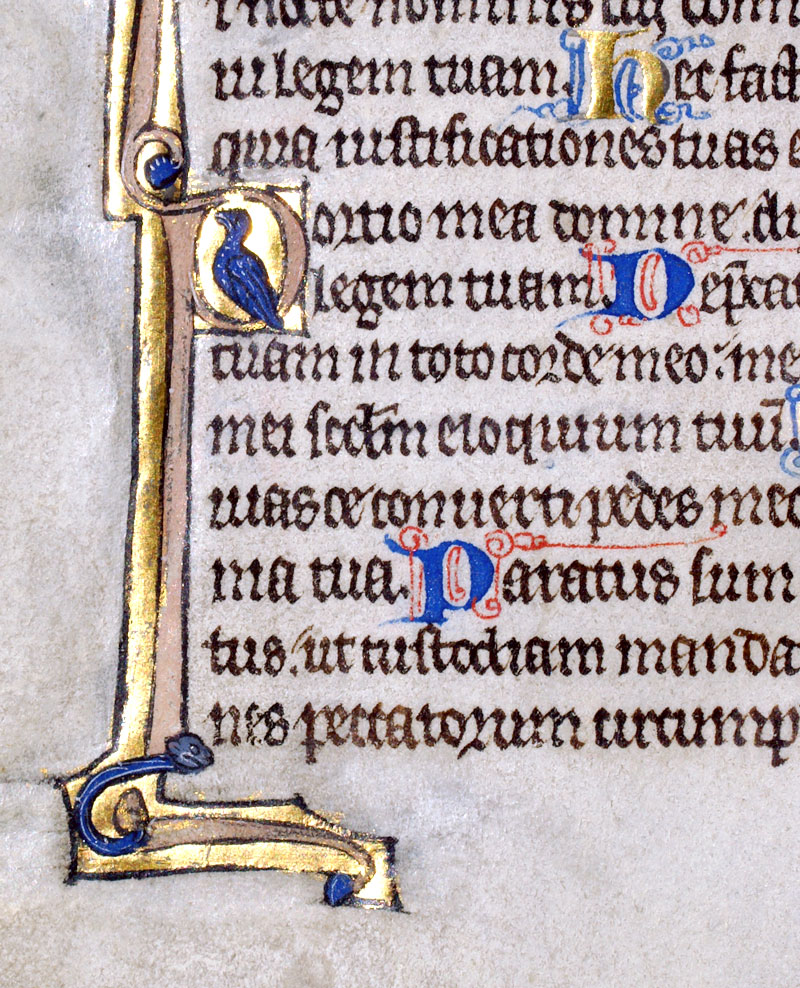 nocte nominis tui
ui legem tuam. Hec fact
quia iustificationes tuas e
Portio mea domine. di
legem tuam. Dep̄cat
tuam in toto corde meo. me
mei scd̄m eloquium tuū.
uias et conuerti pedes meo
nia tua. Paratus sum
tus. ut custodiam manda
nes peccatorum circump